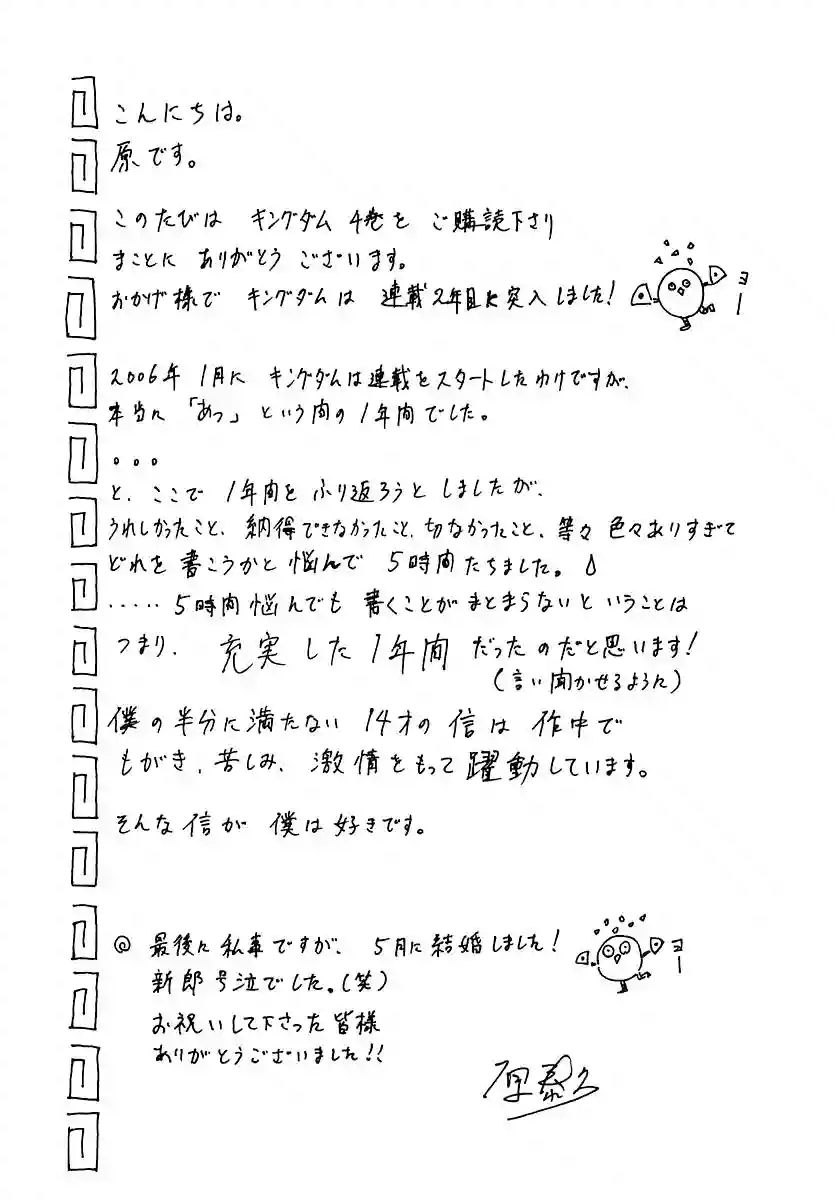 こんにちは。
原です。
このたびは キングダム 4巻を ご購読下さり
まことに ありがとう ございます。
おかげ様で キングダムは 連載2年目に突入しました!
ヨー
2006年 1月に キングダムは連載をスタートしたわけですが、
本当に 「あっ」 という間の 1年間でした。
。。。
と、ここで 1年間を ふり返ろうと しましたが、
うれしかったこと、納得できなかったこと、切なかったこと、等々 色々ありすぎて
どれを 書こうかと 悩んで 5時間たちました。
‥‥‥5時間悩んでも 書くことが まとまらないと いうことは
つまり、 充実した1年間 だったのだと思います!
(言い聞かせるように)
僕の半分に満たない 14才の 信は 作中で
もがき、苦しみ、激情をもって躍動しています。
そんな信が 僕は好きです。
◎ 最後に私事ですが、 5月に結婚しました!
ヨー
新郎号泣でした。(笑)
お祝いして下さった皆様
ありがとうございました!!
原泰久